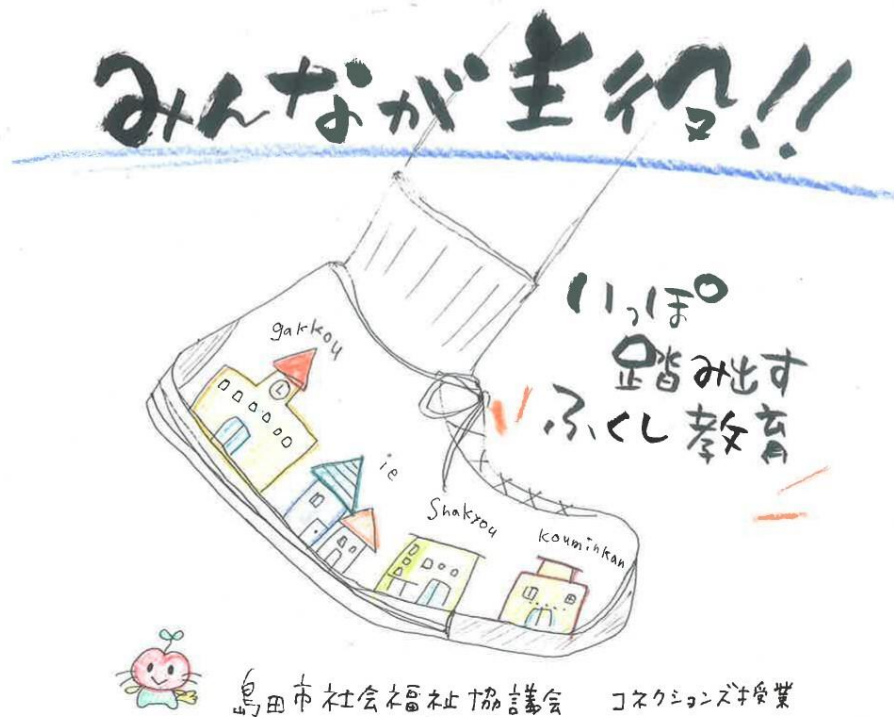 みんなが主役!!
いっぽ
踏み出す
ふくし教育
gakkou
ie
Shakyou
kouminkan
島田市社会福祉協議会 コネクションズ授業